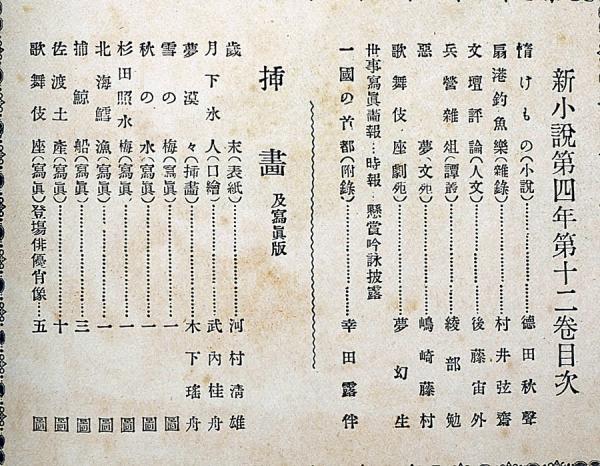 新小說第四年第十二卷目次
惰けもの（小說）…………德田秋聲
扇港釣魚樂（雜錄）…………村井弦齋
文壇評論（人文）…………後藤宙外
兵營雜俎（譚叢）…………綾部勉
惡夢（文苑）…………嶋崎藤村
歌舞伎座劇（苑）…………夢幻生
世事寫眞畵報…時報…懸賞吟詠披露
一國の首都（附錄）…………幸田露伴
挿畵及寫眞版
歲末（表紙）…………河村淸雄
月下氷人（口繪）…………武內桂舟
夢漠々（挿畵）…………木下瑤舟
雪の梅（寫眞）…………一圖
秋の水（寫眞）…………一圖
杉田照水梅（寫眞）…………一圖
北海鱈漁（寫眞）…………一圖
捕鯨船（寫眞）…………三圖
佐渡土產（寫眞）…………十圖
歌舞伎座（寫眞）登塲俳優肖像…五圖